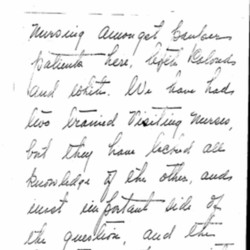 nursing amongst Cancer
patients here, both Colored
and white. We have had
two trained Visiting nurses,
but they have lacked all
knowledge of the other, and
most important side of
the question, and the